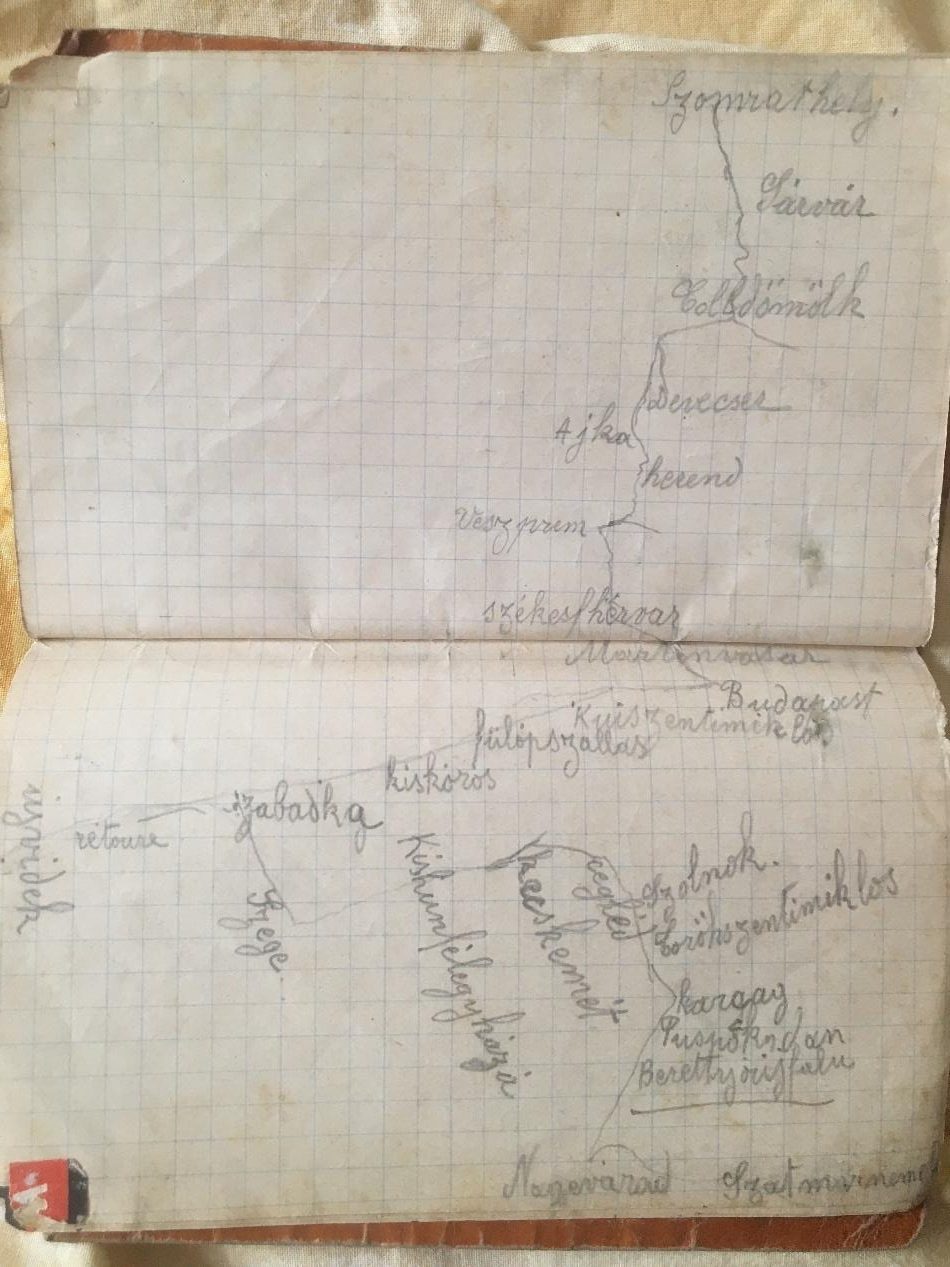 Szomrathely.
Sárvár
Celldömölk
Devecser
Ajka
herend
Veszprem
székesfhérvar
Martonvasar
Budapast
Kuiszentimiklos
fülöpszallas
kiskörös
Szabadka
rétoure
ujvidek
Szege
Kiskunfélegyháza
kecskemét
cegléd
Szolnok.
törökszentimiklos
kargag
Puspökladan
Berettyóujfalu
Nagevárad
Szatmárneme